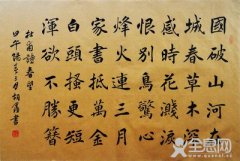 國破山河在
城春草木深
感時花濺淚
恨別鳥驚心
烽火連三月
家書抵萬金
白頭搔更短
渾欲不勝簪
杜甫詩春望
甲午 書